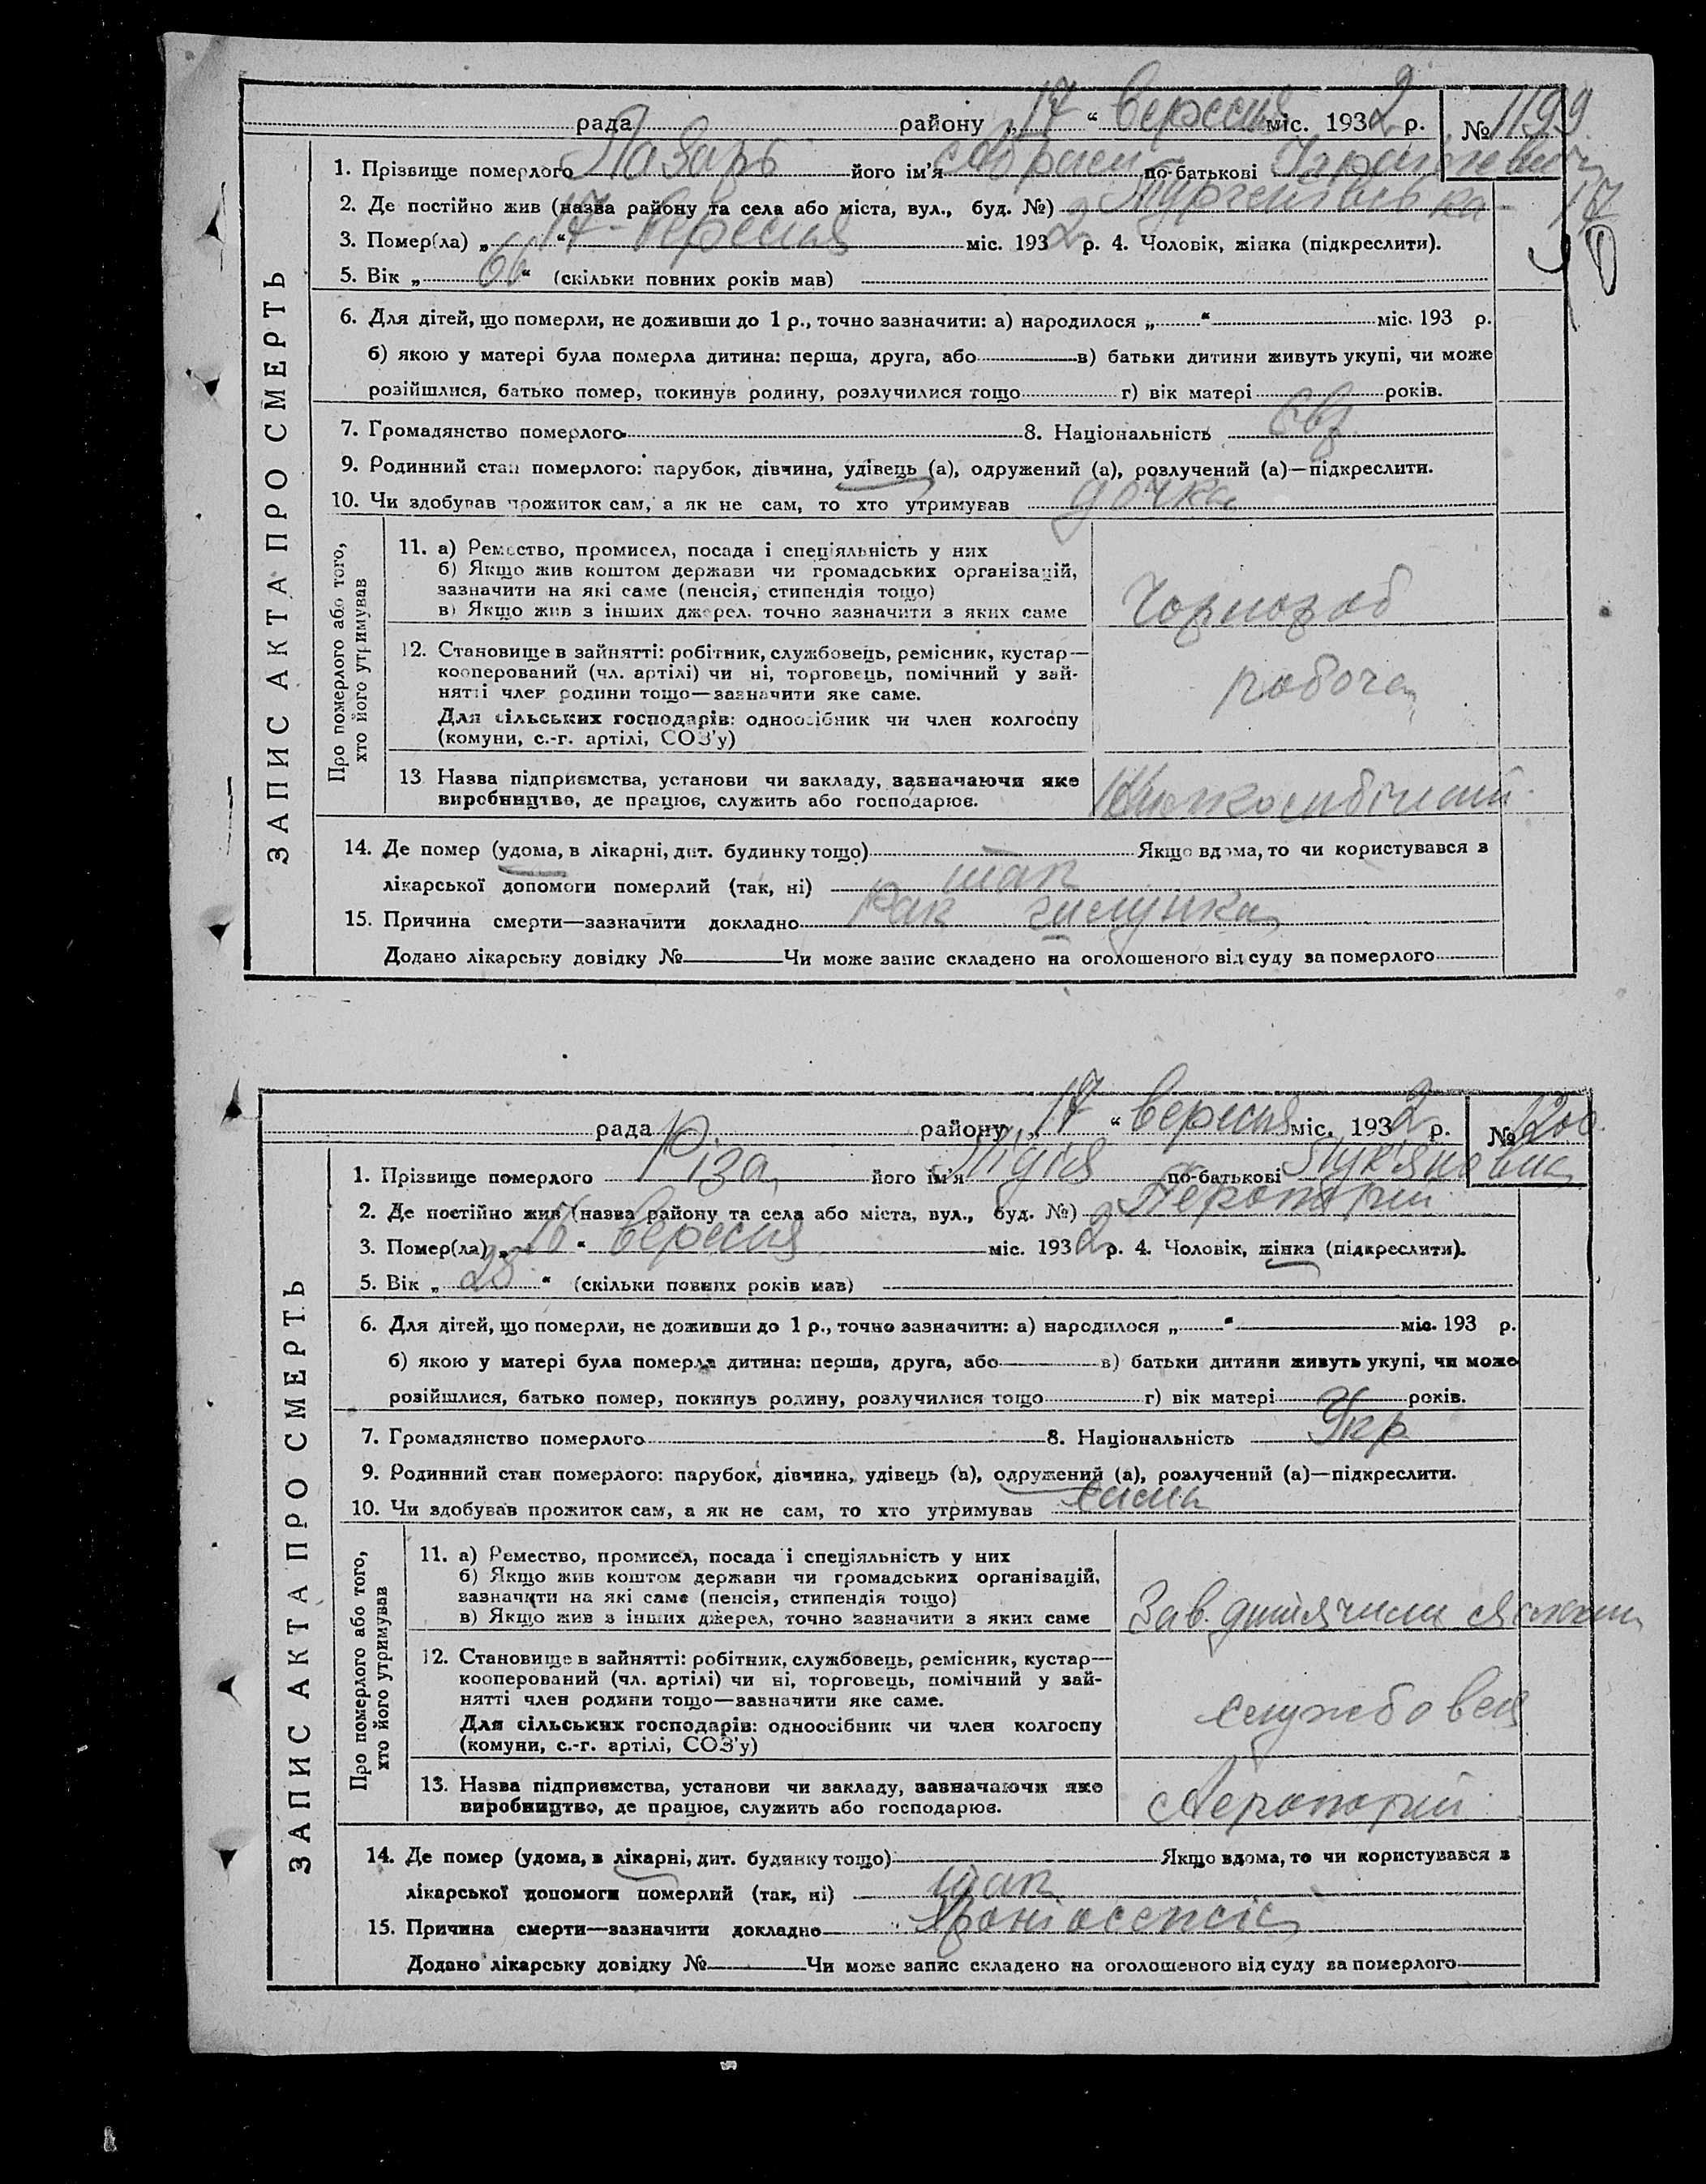 рада району „17“ вересня міс. 1932 р. № 1199
1. Прізвище померлого Лазарь його ім'я Абрам по-батькові
2. Де постійно жив (назва району та села або міста, вул., буд. №) Тургенівська - 17
3. Помер(ла) „17“ вересня міс. 1932 р. 4. Чоловік, жінка (підкреслити).
5. Вік „66“ (скільки повних років мав)
6. Для дітей, що померли, не доживши до 1 р., точно зазначити: а) народилося „ “ міс. 193 р.
б) якою у матері була померла дитина: перша, друга, або в) батьки дитини живуть укупі, чи може
розійшлися, батько помер, покинув родину, розлучилися тощо г) вік матері років.
7. Громадянство померлого 8. Національність Євр
9. Родинний стан померлого: парубок, дівчина, удівець (а), одружений (а), розлучений (а)—підкреслити.
10. Чи здобував прожиток сам, а як не сам, то хто утримував дочка
ЗАПИС АКТА ПРО СМЕРТЬ
Про померлого або того,
хто його утримував
11. а) Ремество, промисел, посада і спеціяльність у них
б) Якщо жив коштом держави чи громадських організацій,
зазначити на які саме (пенсія, стипендія тощо)
в) Якщо жив з інших джерел, точно зазначити з яких саме
Чорнороб
12. Становище в зайнятті: робітник, службовець, ремісник, кустар—
кооперований (чл. артілі) чи ні, торговець, помічний у зай-
нятті член родини тощо—зазначити яке саме.
Для сільських господарів: одноосібник чи член колгоспу
(комуни, с.-г. артілі, СОЗ'у)
робоча
13. Назва підприємства, установи чи закладу, зазначаючи яке
виробництво, де працює, служить або господарює.
14. Де помер (удома, в лікарні, дит. будинку тощо) Якщо вдома, то чи користувався з
лікарської допомоги померлий (так, ні) так
15. Причина смерти—зазначити докладно Рак шлунка
Додано лікарську довідку № Чи може запис складено на оголошеного від суду за померлого
рада району „17“ вересня міс. 1932 р. № 1200
1. Прізвище померлого Різа його ім'я Лідія по-батькові Лук'яновна
2. Де постійно жив (назва району та села або міста, вул., буд. №) Аеропорт
3. Помер(ла) „16“ вересня міс. 1932 р. 4. Чоловік, жінка (підкреслити).
5. Вік „28“ (скільки повних років мав)
6. Для дітей, що померли, не доживши до 1 р., точно зазначити: а) народилося „ “ міс. 193 р.
б) якою у матері була померла дитина: перша, друга, або в) батьки дитини живуть укупі, чи може
розійшлися, батько помер, покинув родину, розлучилися тощо г) вік матері років.
7. Громадянство померлого 8. Національність Укр
9. Родинний стан померлого: парубок, дівчина, удівець (а), одружений (а), розлучений (а)—підкреслити.
10. Чи здобував прожиток сам, а як не сам, то хто утримував сама
ЗАПИС АКТА ПРО СМЕРТЬ
Про померлого або того,
хто його утримував
11. а) Ремество, промисел, посада і спеціяльність у них
б) Якщо жив коштом держави чи громадських організацій,
зазначити на які саме (пенсія, стипендія тощо)
в) Якщо жив з інших джерел, точно зазначити з яких саме
Зав. дитячими яслами
12. Становище в зайнятті: робітник, службовець, ремісник, кустар—
кооперований (чл. артілі) чи ні, торговець, помічний у зай-
нятті член родини тощо—зазначити яке саме.
Для сільських господарів: одноосібник чи член колгоспу
(комуни, с.-г. артілі, СОЗ'у)
службовец
13. Назва підприємства, установи чи закладу, зазначаючи яке
виробництво, де працює, служить або господарює.
Аеропорт
14. Де помер (удома, в лікарні, дит. будинку тощо) Якщо вдома, то чи користувався з
лікарської допомоги померлий (так, ні) так
15. Причина смерти—зазначити докладно Хроніосепсіс
Додано лікарську довідку № Чи може запис складено на оголошеного від суду за померлого